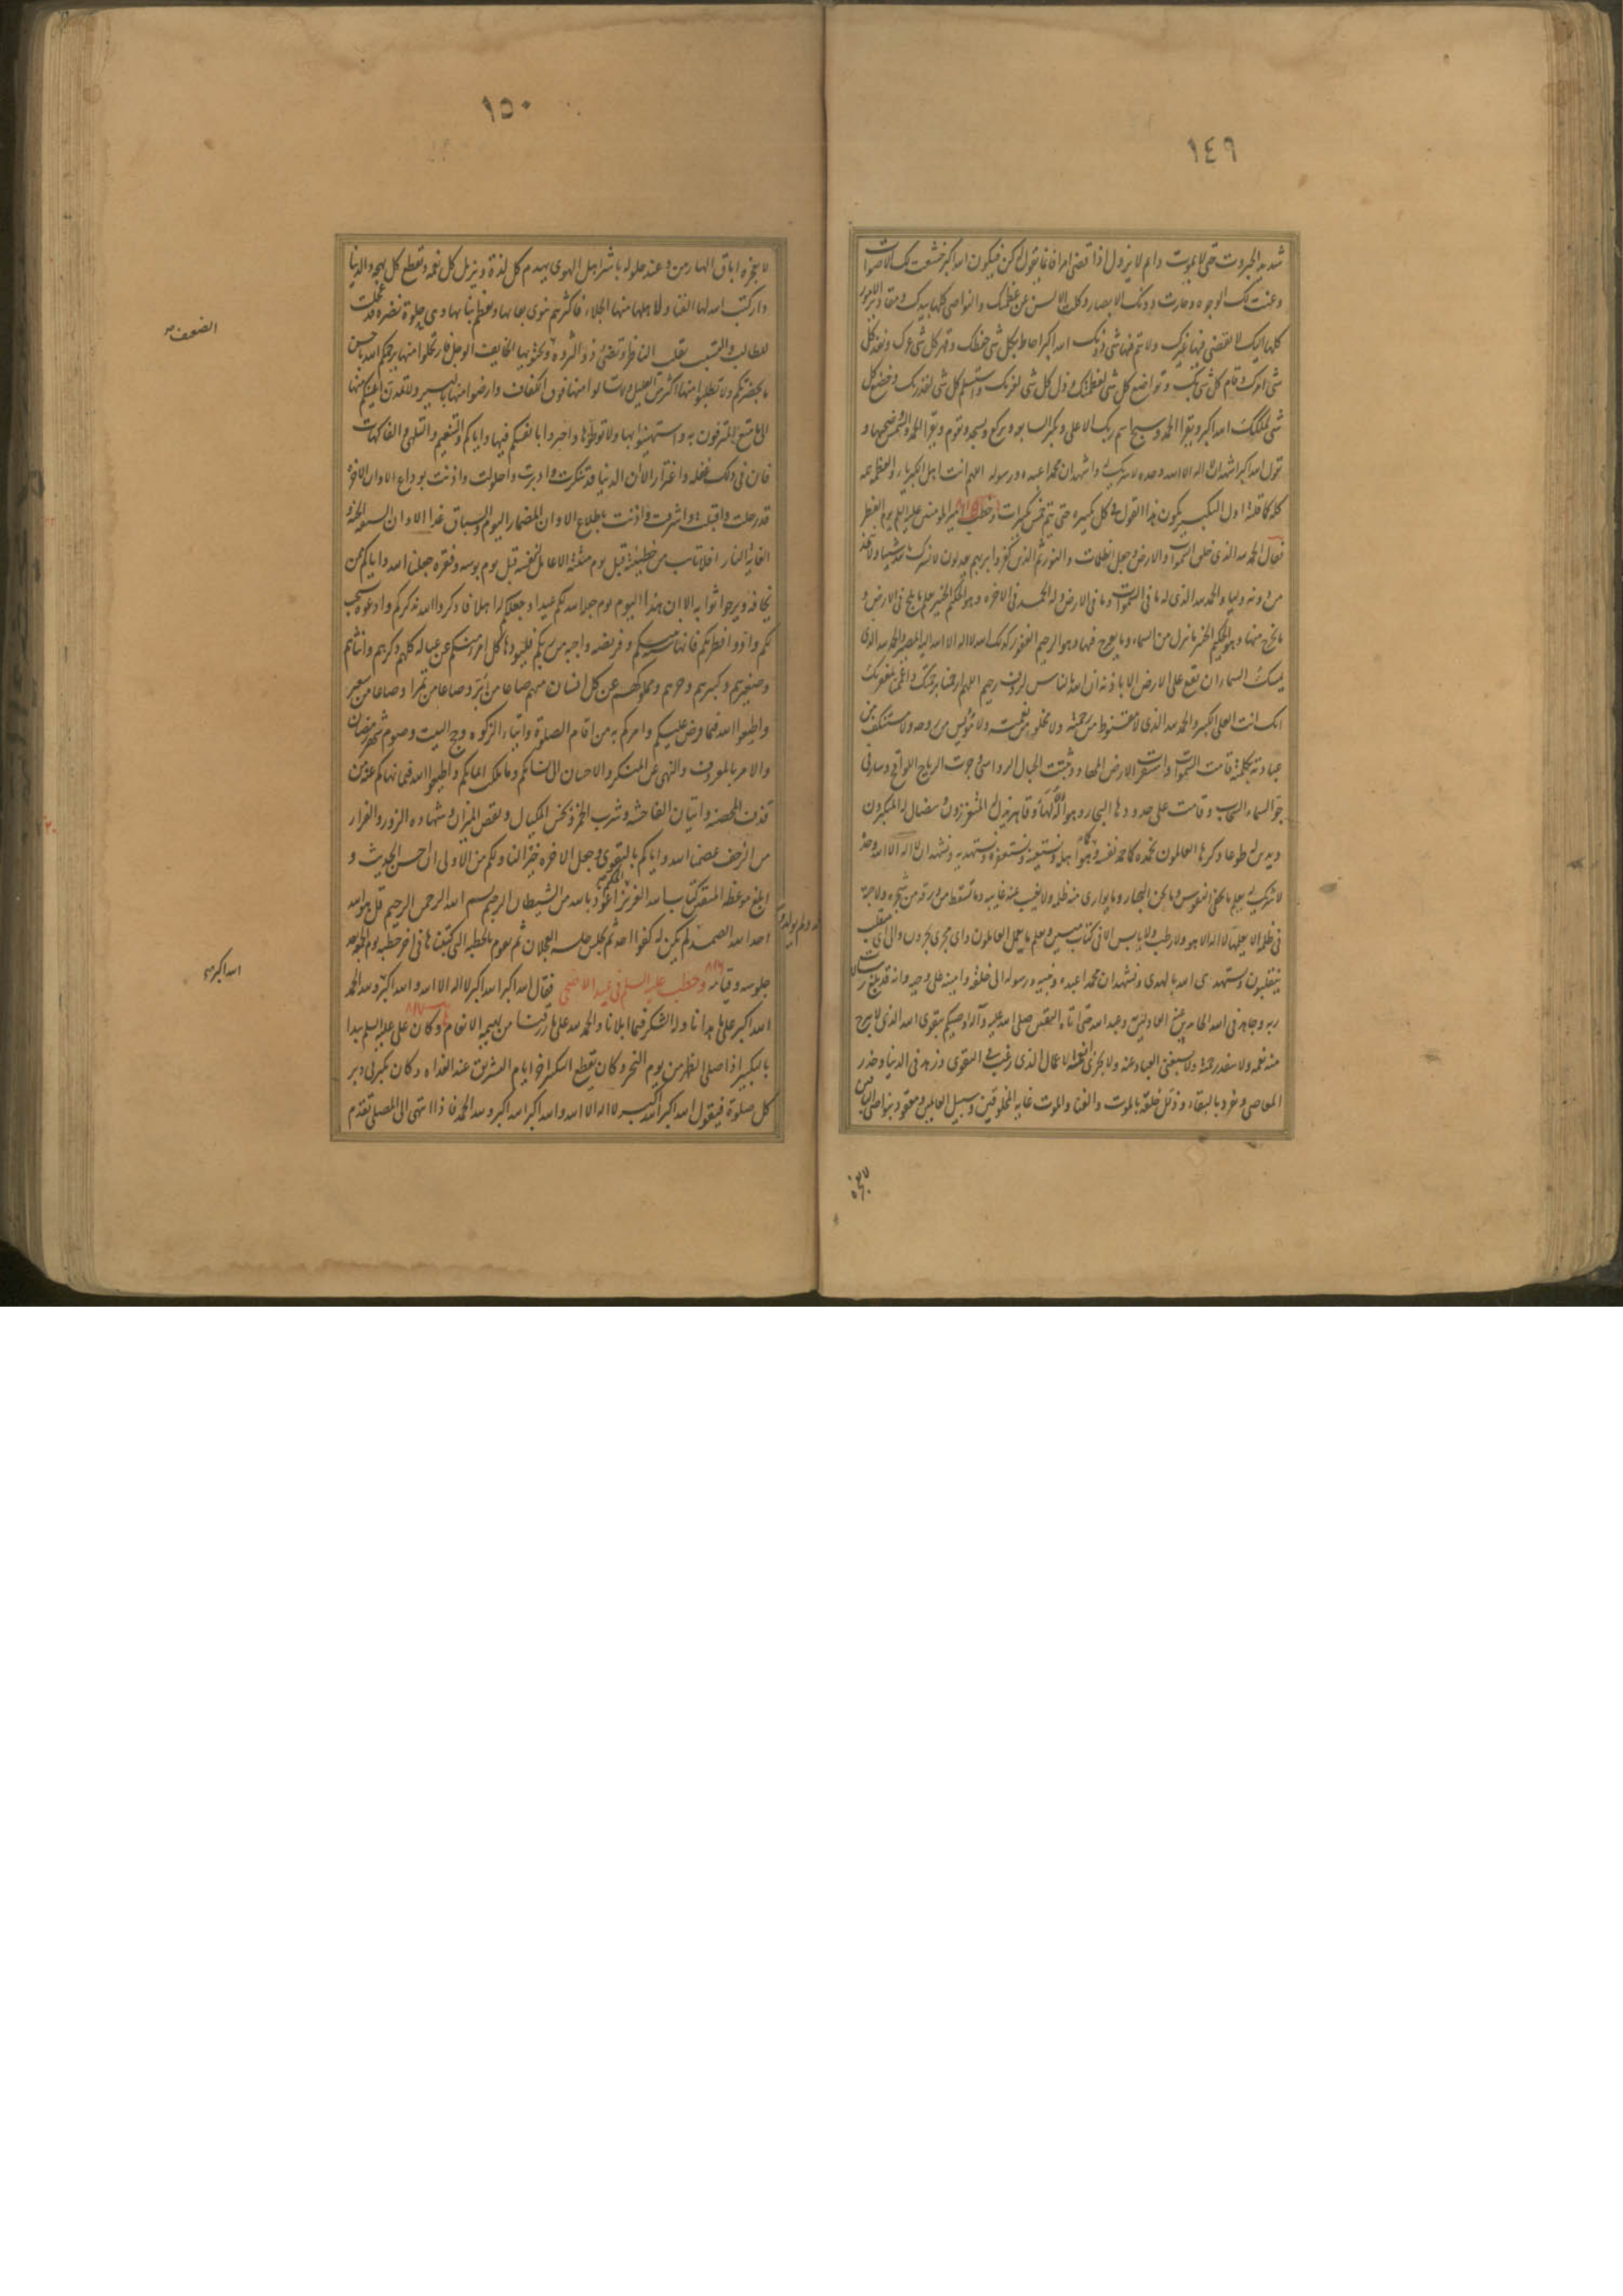 ١٤٩
شديد الجبروت حي لا يموت دايم لا يزول اذا قضى امرا فانما يقول له كن فيكون الله اكبر خشعت لك الاصوات
وعنت لك الوجوه وحارت دونك الابصار وكلت الالسن عن عظمتك والنواصى كلها بيدك ومقادير الامور
كلها اليك لا يقضى فيها غيرك ولا يتم فيها شى دونك الله اكبر احاط بكل شى حفظك وقهر كل شى عزك ونفذ كل
شى امرك وقام كل شى بك وتواضع كل شى لعظمتك وذل كل شى لعزتك واستسلم كل شى لقدرتك وخضع كل
شى لملكك الله اكبر ويقرا الحمد وسبح اسم ربك الاعلى ويكبر السابعة ويركع ويسجد ويقوم ويقرا الحمد والشمس وضحيها و
تقول الله اكبر اشهد ان لا اله الا الله وحده لا شريك له واشهد ان محمدا عبده ورسوله اللهم انت اهل الكبرياء والعظمة تتمه
كله كما قلته اول التكبير يكون هذا القول فى كل تكبيره حتى يتم خمس تكبيرات وخطب امير المومنين عليه السلم يوم الفطر
فقال الحمد لله الذى خلق السموات والارض وجعل الظلمات والنور ثم الذين كفروا بربهم يعدلون لا نشرك بالله شيئا ولا نتخذ
من دونه وليا والحمد لله الذى له ما فى السموات وما فى الارض وله الحمد فى الاخره وهو الحكيم الخبير يعلم ما يلج فى الارض و
ما يخرج منها وما ينزل من السماء وما يعرج فيها وهو الرحيم الغفور كذلك الله لا اله الا هو اليه المصير والحمد لله الذى
يمسك السماء ان تقع على الارض الا باذنه ان الله بالناس لرؤف رحيم اللهم ارحمنا برحمتك واعممنا بمغفرتك
انك انت العلى الكبير والحمد لله الذى لا مقنوط من رحمته ولا مخلو من نعمته ولا مؤيس من روحه ولا مستنكف عن
عبادته بكلمته قامت السموات واستقرت الارض المهاد وثبتت الجبال الرواسى وجرت الرياح اللواقح وسار فى
جو السماء السحاب وقامت على حدودها البحار وهو اله لها وقاهر يذل له المتعززون ويتضال له المتكبرون
ويدين له طوعا وكرها العالمون نحمده كما حمد نفسه وكما هو اهله ونستعينه ونستغفره ونستهديه ونشهد ان لا اله الا الله وحده
لا شريك له يعلم ما تخفى النفوس وما تجن البحار وما توارى منه ظلمة ولا تغيب عنه غايبه وما تسقط من ورقة من شجره ولا حبة
فى ظلمة الا يعلمها لا اله الا هو ولا رطب ولا يابس الا فى كتاب مبين ويعلم ما يعمل العاملون واى مجرى يجرون والى اى منقلب
ينقلبون ونستهدى الله بالهدى ونشهد ان محمدا عبده ونبيه ورسوله الى خلقه وامينه على وحيه وانه قد بلغ رسالات
ربه وجاهد فى الله الحايدين عنه العادلين به وعبد الله حتى اتاه اليقين صلى الله عليه وآله اوصيكم بتقوى الله الذى لا تبرح
منه نعمه ولا تنفد منه رحمة ولا يستغنى العباد عنه ولا يجزى انعمه الاعمال الذى رغب فى التقوى وزهد فى الدنيا وحذر
المعاصى وتعزز بالبقاء وذلل خلقه بالموت والفناء والموت غاية المخلوقين وسبيل العالمين ومعقود بنواصى الباقين
١٥٠
لا يعجزه اباق الهاربين وعند حلوله ياسر اهل الهوى يهدم كل لذة ويزيل كل نعمه ويقطع كل بهجه والدنيا
دار كتب الله لها الفناء ولاهلها منها الجلاء فاكثرهم ينوى بقاءها ويعظم بناءها وهى حلوة خضره قد عجلت
للطالب والتبست بقلب الناظر وتضنى ذو الثروه ويجتويها الخايف الوجل فارتحلوا منها يرحمكم الله باحسن
ما بحضرتكم ولا تطلبوا منها اكثر من القليل ولا تسالوا منها فوق الكفاف وارضوا منها باليسير ولا تمدن اعينكم منها
الى ما متع المترفون به واستهينوا بها ولا توطنوها واضروا بانفسكم فيها واياكم والتنعم والتلهى والفاكهات
فان فى ذلك غفله واغترار الا ان الدنيا قد تنكرت وادبرت واحلولت واذنت بوداع الا وان الاخره
قد رحلت واقبلت واشرفت واذنت باطلاع الا وان المضمار اليوم والسباق غدا الا وان السبقه الجنة و
الغاية النار افلا تايب من خطيئته قبل يوم منيته الا عامل لنفسه قبل يوم بوسه وفقره جعلنا الله واياكم ممن
يخافه ويرجو ثوابه الا ان هذا اليوم يوم جعله الله لكم عيدا وجعلكم له اهلا فاذكروا الله يذكركم وادعوه يستجب
لكم وادوا فطرتكم فانها سنة نبيكم وفريضه واجبه من ربكم فليودها كل امرء منكم عن عياله كلهم ذكرهم وانثاهم
وصغيرهم وكبيرهم وحرهم ومملوكهم عن كل انسان منهم صاعا من بر او صاعا من تمر او صاعا من شعير
واطيعوا الله فيما فرض عليكم وامركم به من اقام الصلوة وايتاء الزكوه وحج البيت وصوم شهر رمضان
والامر بالمعروف والنهى عن المنكر والاحسان الى نسائكم وما ملكت ايمانكم واطيعوا الله فيما نهاكم عنه من
قذف المحصنه واتيان الفاحشة وشرب الخمر وبخس المكيال ونقص الميزان وشهاده الزور والفرار
من الزحف عصمنا الله واياكم بالتقوى وجعل الاخره خيرا لنا ولكم من الاولى ان احسن الحديث و
ابلغ موعظه المتقين كتاب الله العزيز الحكيم اعوذ بالله من الشيطان الرجيم بسم الله الرحمن الرحيم قل هو الله
احد الله الصمد لم يلد ولم يولد ولم يكن له كفوا احد ثم يجلس جلسه العجلان ثم يقوم بالخطبه التى كتبناها فى اخر خطبه يوم الجمعه بعد
جلوسه وقيامه وخطب عليه السلم فى عيد الاضحى فقال الله اكبر الله اكبر لا اله الا الله والله اكبر ولله الحمد
الله اكبر على ما هدانا وله الشكر فيما ابلانا والحمد لله على ما رزقنا من بهيمه الانعام وكان على عليه السلم يبدا
بالتكبير اذا صلى الظهر من يوم النحر وكان يقطع التكبير اخر ايام التشريق عند الغداه وكان يكبر فى دبر
كل صلوة فيقول الله اكبر الله اكبر لا اله الا الله والله اكبر الله اكبر ولله الحمد فاذا انتهى الى المصلى تقدم
الله اكبر